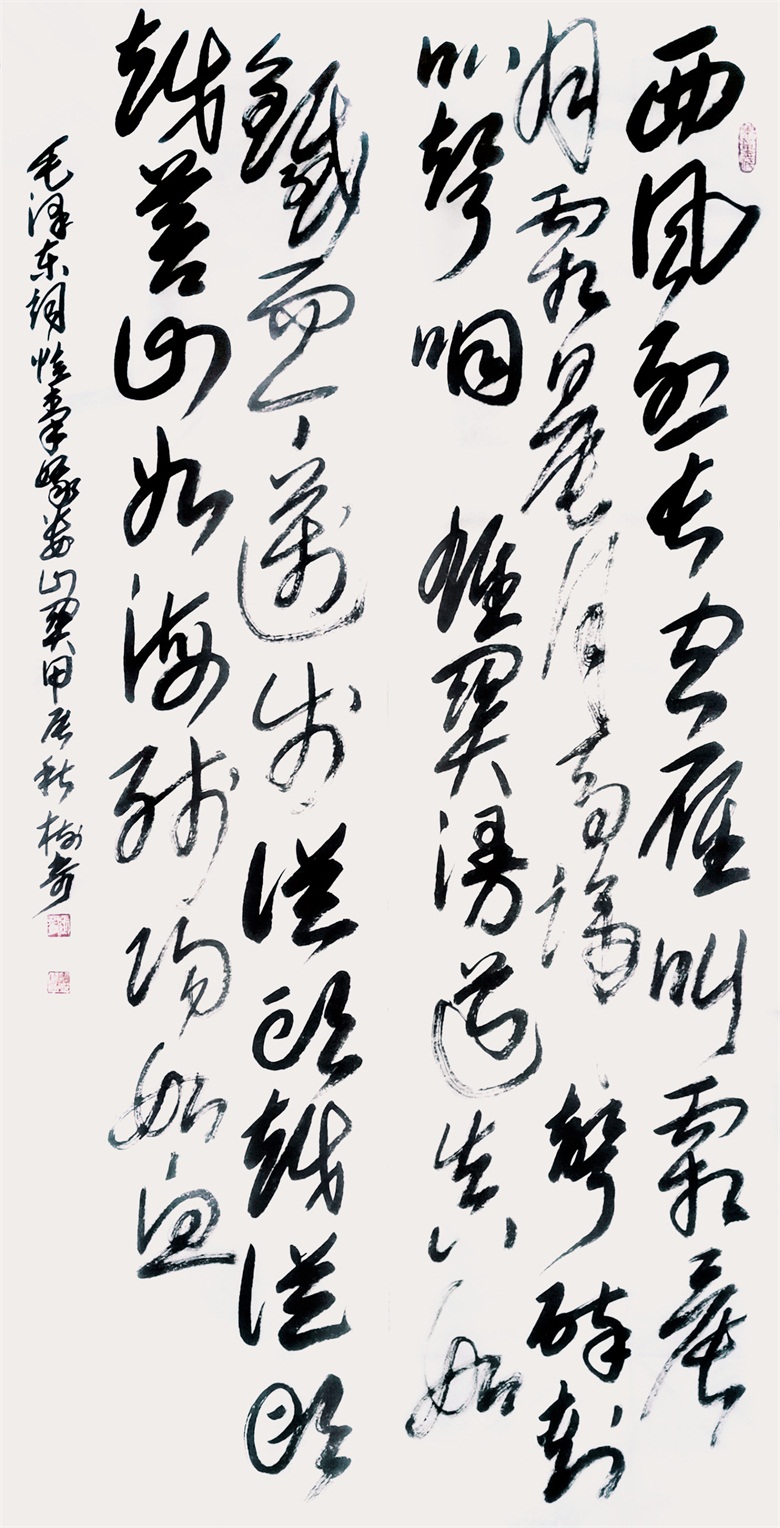 西风烈长空雁叫霜晨
月霜晨月马蹄聲碎喇
叭聲咽雄関漫道真如
鐵而今邁步從头越從头
越苍山如海残阳如血
毛泽东词忆秦娥娄山関甲辰秋树奇